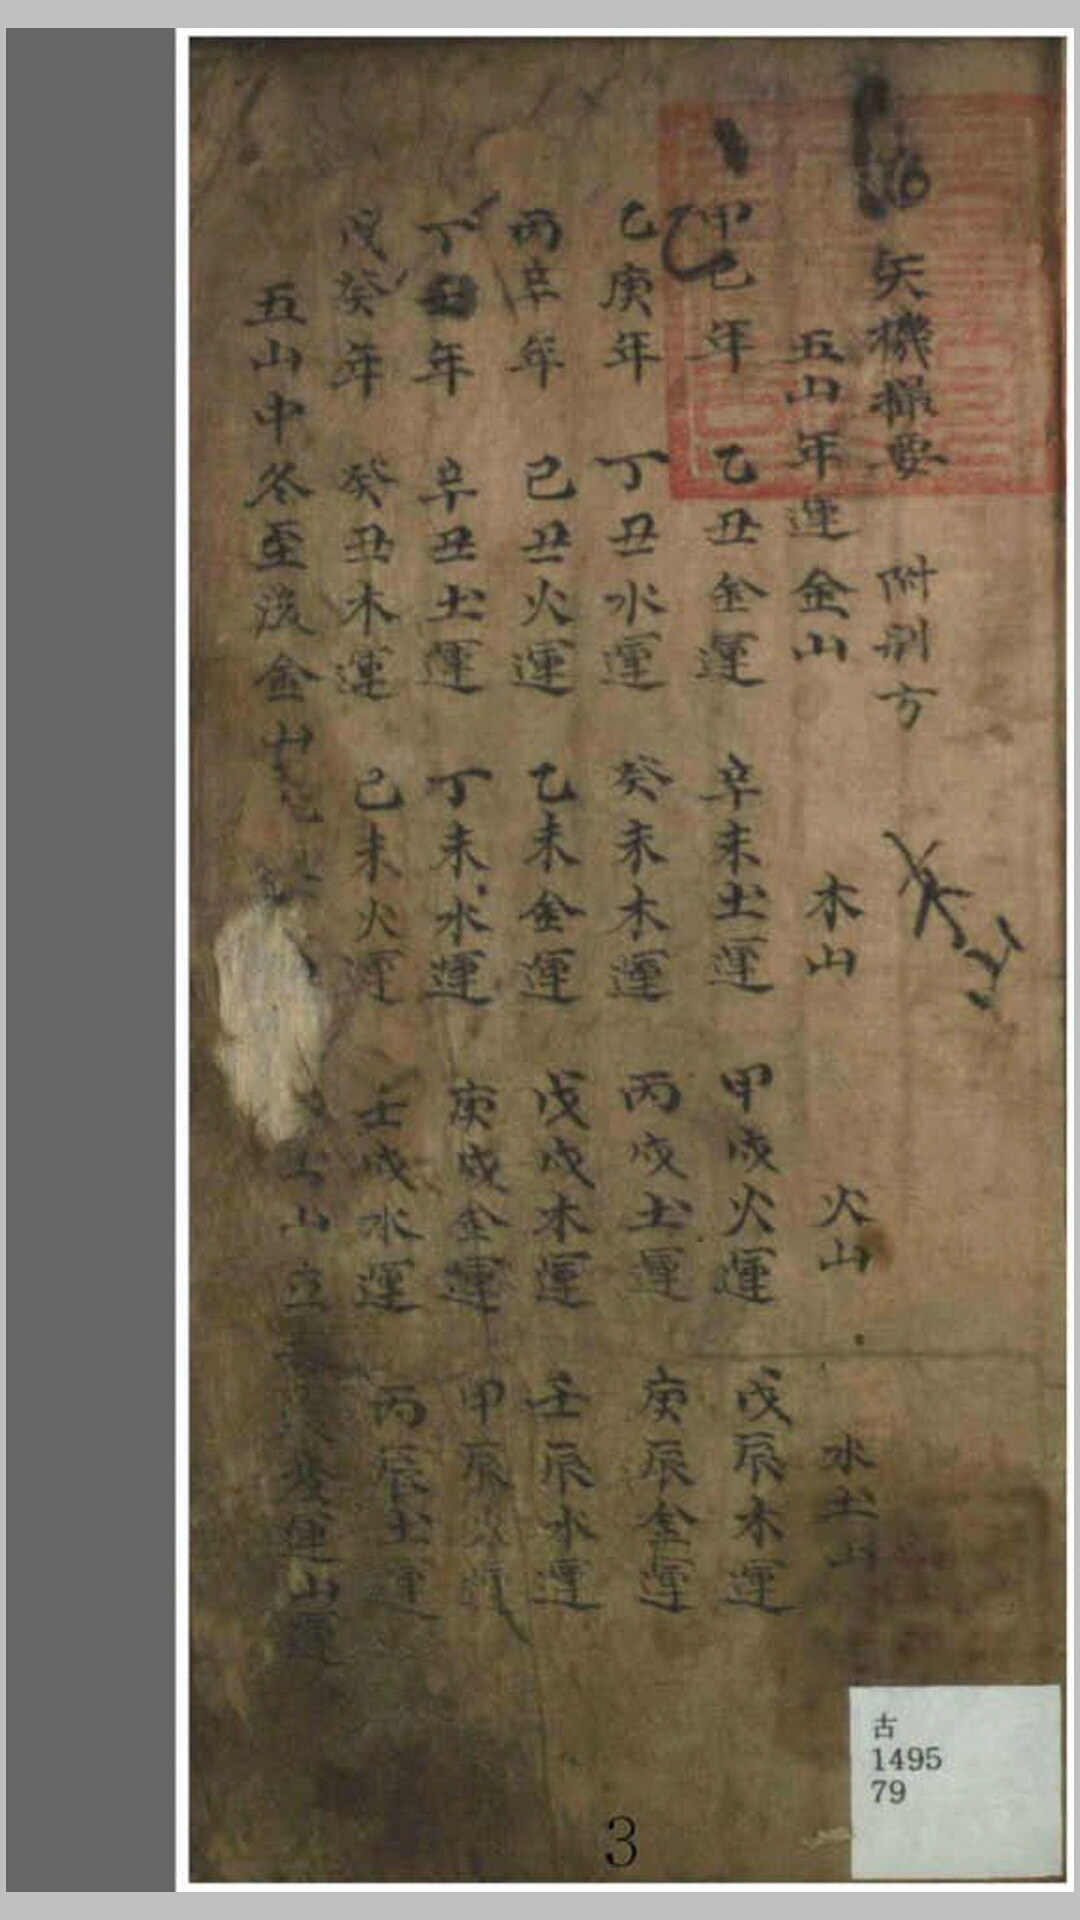 矢機撮要 附別方
五山年運 金山 木山 火山 水土山
甲己年 乙丑金運 辛未土運 甲戌火運 戊辰木運
乙庚年 丁丑水運 癸未木運 丙戌土運 庚辰金運
丙辛年 己丑火運 乙未金運 戊戌木運 壬辰水運
丁壬年 辛丑土運 丁未水運 庚戌金運 甲辰火運
戊癸年 癸丑木運 己未火運 壬戌水運 丙辰土運
五山中冬至後金山 山立 運山運
古
1495
79
3